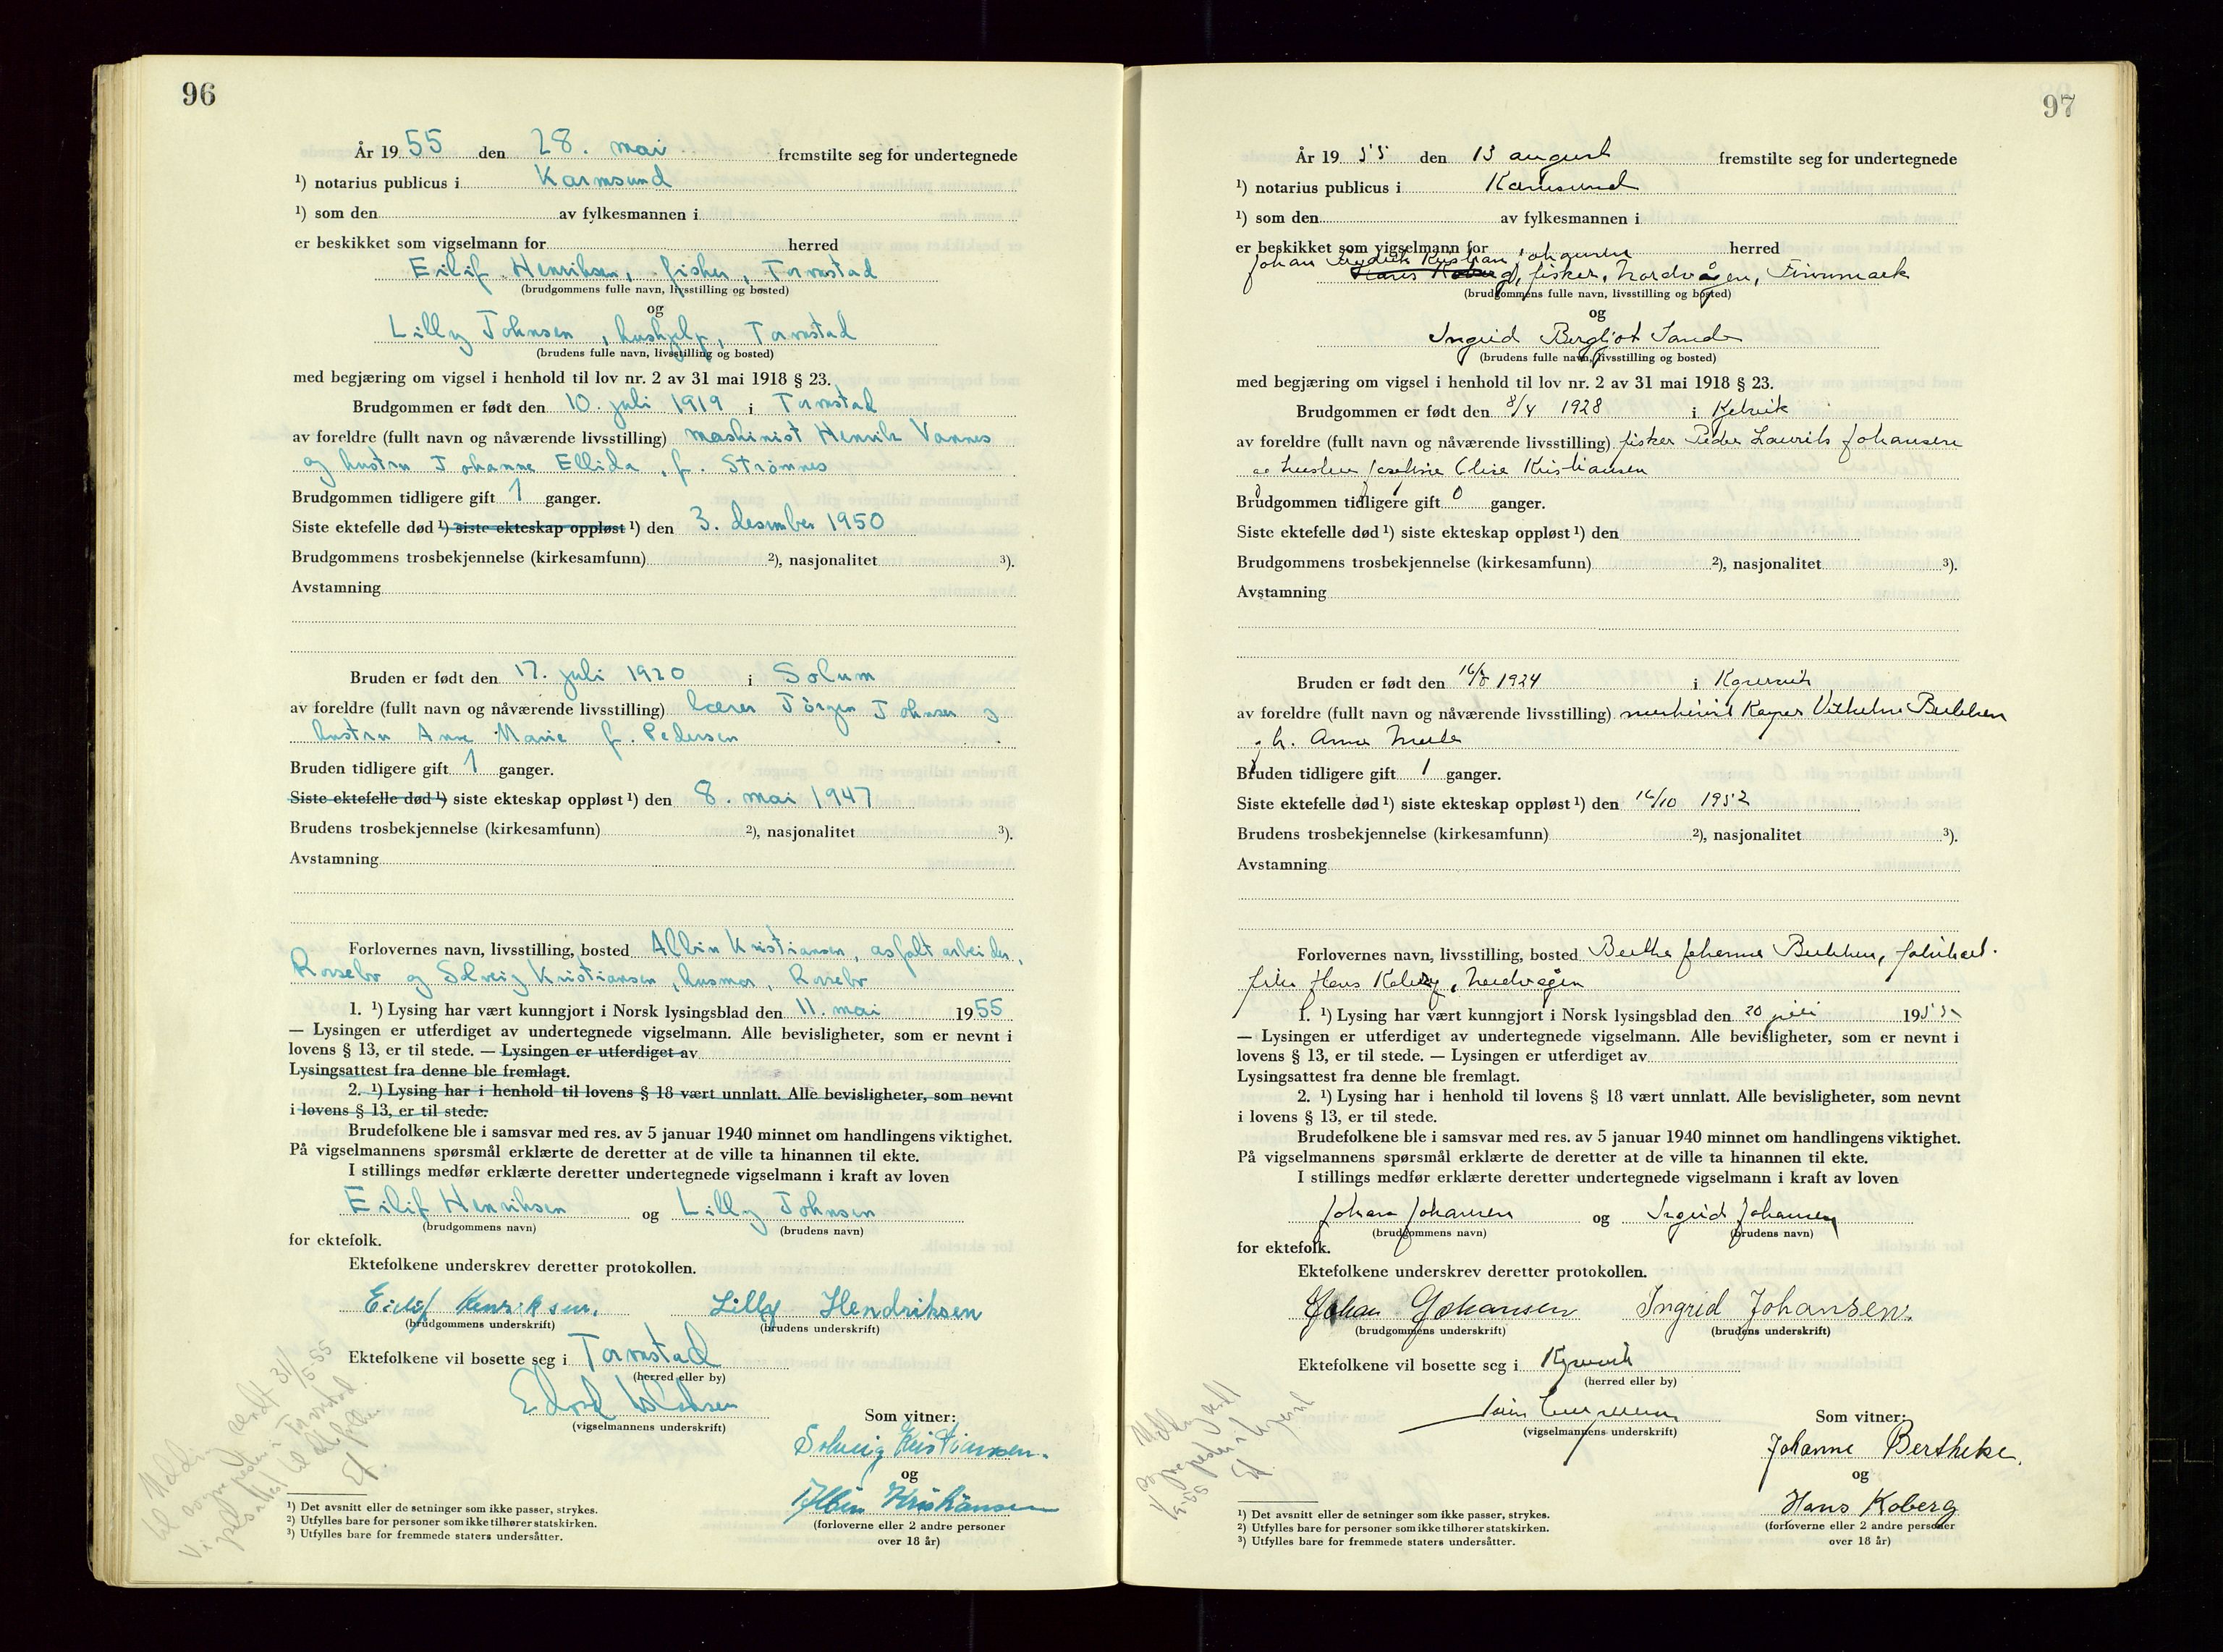 96
År 1955 den 28. mai fremstilte seg for undertegnede
¹) notarius publicus i Karmsund
¹) som den av fylkesmannen i
er beskikket som vigselmann for herred
Eilif Henriksen, fisker, Torvastad
(brudgommens fulle navn, livsstilling og bosted)
og
Lilly Johnsen, hushjelp, Torvastad
(brudens fulle navn, livsstilling og bosted)
med begjæring om vigsel i henhold til lov nr. 2 av 31 mai 1918 § 23.
Brudgommen er født den 10. juli 1919 i Torvastad
av foreldre (fullt navn og nåværende livsstilling) maskinist Henrik Vannes
og hustru Johanne Ellida, f. Strømnes
Brudgommen tidligere gift 1 ganger.
Siste ektefelle død ¹) siste ekteskap oppløst ¹) den 3. desember 1950
Brudgommens trosbekjennelse (kirkesamfunn) ²), nasjonalitet ³).
Avstamning
Bruden er født den 17. juli 1920 i Solum
av foreldre (fullt navn og nåværende livsstilling) lærer Jörgen Johnsen og
hustru Anne Marie f. Pedersen
Bruden tidligere gift 1 ganger.
Siste ektefelle død ¹) siste ekteskap oppløst ¹) den 8. mai 1947
Brudens trosbekjennelse (kirkesamfunn) ²), nasjonalitet ³).
Avstamning
Forlovernes navn, livsstilling, bosted Albin Kristiansen, asfaltarbeider,
Rossebø og Solveig Kristiansen, husmor, Rossebø
1. ¹) Lysing har vært kunngjort i Norsk lysingsblad den 11. mai 1955
— Lysingen er utferdiget av undertegnede vigselmann. Alle bevisligheter, som er nevnt i
lovens § 13, er til stede. — Lysingen er utferdiget av
Lysingsattest fra denne ble fremlagt.
2. ¹) Lysing har i henhold til lovens § 18 vært unnlatt. Alle bevisligheter, som nevnt
i lovens § 13, er til stede.
Brudefolkene ble i samsvar med res. av 5 januar 1940 minnet om handlingens viktighet.
På vigselmannens spørsmål erklærte de deretter at de ville ta hinannen til ekte.
I stillings medfør erklærte deretter undertegnede vigselmann i kraft av loven
Eilif Henriksen og Lilly Johnsen
(brudgommens navn) (brudens navn)
for ektefolk.
Ektefolkene underskrev deretter protokollen.
Eilif Henriksen. Lilly Hendriksen
(brudgommens underskrift) (brudens underskrift)
Ektefolkene vil bosette seg i Torvastad
(herred eller by)
(vigselmannens underskrift)
Som vitner:
Solveig Kristiansen.
og
Albin Kristiansen
(forloverne eller 2 andre personer
over 18 år)
Melding sendt 31/5-55
til sognepresten i Torvastad.
Vigselsattest til ektefolkene
¹) Det avsnitt eller de setninger som ikke passer, strykes.
²) Utfylles bare for personer som ikke tilhører statskirken.
³) Utfylles bare for fremmede staters undersåtter.
97
År 1955 den 13 august fremstilte seg for undertegnede
¹) notarius publicus i Karmsund
¹) som den av fylkesmannen i
er beskikket som vigselmann for herred
Johan Fredrik Kristian Johansen
Hans Koberg, fisker, Nordvågen, Finnmark
(brudgommens fulle navn, livsstilling og bosted)
og
Ingrid Bergljot Sande
(brudens fulle navn, livsstilling og bosted)
med begjæring om vigsel i henhold til lov nr. 2 av 31 mai 1918 § 23.
Brudgommen er født den 8/4 1928 i Kjelvik
av foreldre (fullt navn og nåværende livsstilling) fisker Peder Laurits Johansen
og hustru Josefine Elise Kristiansen
Brudgommen tidligere gift 0 ganger.
Siste ektefelle død ¹) siste ekteskap oppløst ¹) den
Brudgommens trosbekjennelse (kirkesamfunn) ²), nasjonalitet ³).
Avstamning
Bruden er født den 16/8 1924 i Kopervik
av foreldre (fullt navn og nåværende livsstilling) maskinist Vilhelm
og h. Anna
Bruden tidligere gift 1 ganger.
Siste ektefelle død ¹) siste ekteskap oppløst ¹) den 16/10 1952
Brudens trosbekjennelse (kirkesamfunn) ²), nasjonalitet ³).
Avstamning
Forlovernes navn, livsstilling, bosted Johanne
Hans Koberg, Nordvågen
1. ¹) Lysing har vært kunngjort i Norsk lysingsblad den 20 juli 1955
— Lysingen er utferdiget av undertegnede vigselmann. Alle bevisligheter, som er nevnt i
lovens § 13, er til stede. — Lysingen er utferdiget av
Lysingsattest fra denne ble fremlagt.
2. ¹) Lysing har i henhold til lovens § 18 vært unnlatt. Alle bevisligheter, som nevnt
i lovens § 13, er til stede.
Brudefolkene ble i samsvar med res. av 5 januar 1940 minnet om handlingens viktighet.
På vigselmannens spørsmål erklærte de deretter at de ville ta hinannen til ekte.
I stillings medfør erklærte deretter undertegnede vigselmann i kraft av loven
Johan Johansen og Ingrid Johansen
(brudgommens navn) (brudens navn)
for ektefolk.
Ektefolkene underskrev deretter protokollen.
Johan Johansen Ingrid Johansen.
(brudgommens underskrift) (brudens underskrift)
Ektefolkene vil bosette seg i Kopervik
(herred eller by)
(vigselmannens underskrift)
Som vitner:
Johanne Bertheke.
og
Hans Koberg
(forloverne eller 2 andre personer
over 18 år)
¹) Det avsnitt eller de setninger som ikke passer, strykes.
²) Utfylles bare for personer som ikke tilhører statskirken.
³) Utfylles bare for fremmede staters undersåtter.